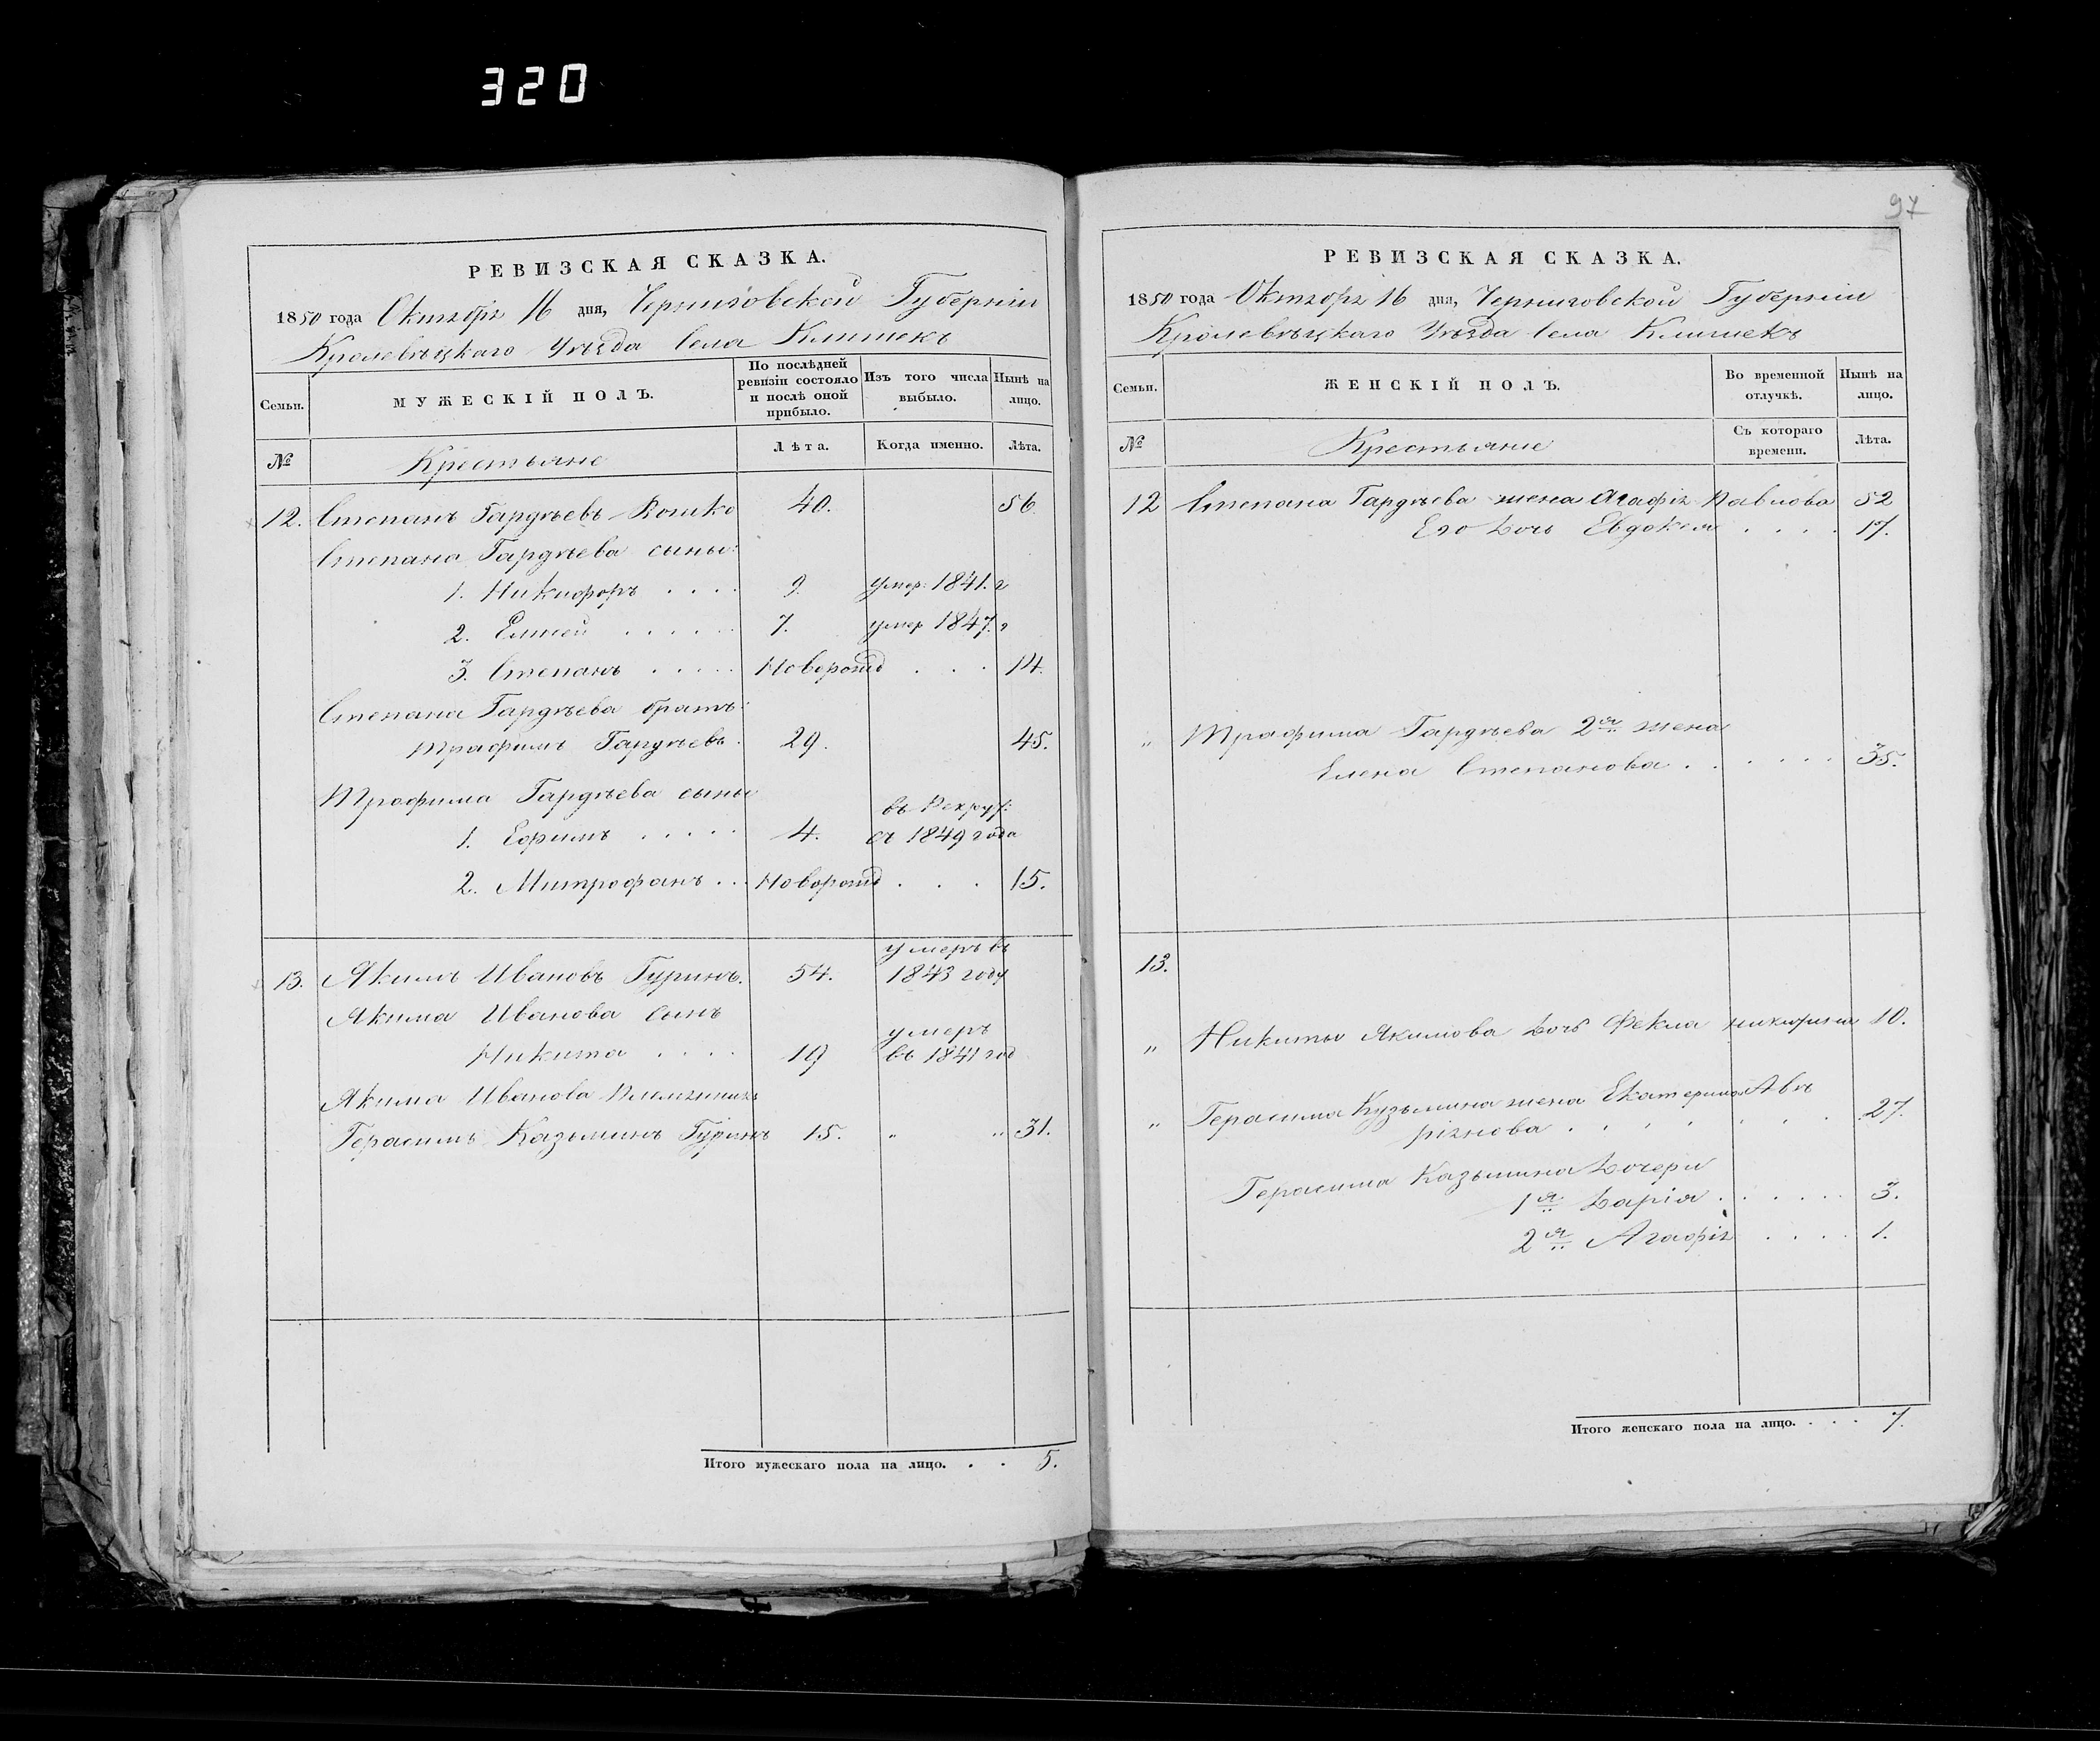 320
97
РЕВИЗСКАЯ СКАЗКА.
1850 года Октября 16 дня, Черниговской Губерніи
Кролевѣцкаго Уѣзда Села Клишекъ
Семьи.
МУЖЕСКІЙ ПОЛЪ.
По послѣдней ревизіи состояло и послѣ оной прибыло.
Изъ того числа выбыло.
Нынѣ на лицо.
№
Крестьяне
Лѣта.
Когда именно.
Лѣта.
12. Степанъ Гардѣевъ Кошко 40. 56.
Степана Гардѣева сыны:
1. Никифоръ . . . . 9. умер: 1841. г
2. Елисей . . . . . . 7. умер 1847. г
3. Степанъ . . . . . Новорожд . . . 14.
Степана Гардѣева братъ:
Трафимъ Гардѣевъ. 29. 45.
Трафима Гардѣева сыны
въ Рекрут:
1. Ефимъ . . . . . 4. съ 1849 года
2. Митрофанъ . . . Новорожд . . . 15.
умеръ въ
13. Якимъ Ивановъ Гуринъ. 54. 1843 году
Якима Иванова сынъ
умеръ
Никита . . . . 19 въ 1841 год
Якима Иванова Племянникъ
Герасимъ Казьминъ Гуринъ 15. " " 31.
Итого мужескаго пола на лицо. . . 5.
РЕВИЗСКАЯ СКАЗКА.
1850 года Октября 16 дня, Черниговской Губерніи
Кролевѣцкаго Уѣзда Села Клишекъ
Семьи.
ЖЕНСКІЙ ПОЛЪ.
Во временной отлучкѣ.
Нынѣ на лицо.
№
Крестьяне
Съ котораго времени.
Лѣта.
12 Степана Гардѣева жена Агафія Павлова 52
Его дочь Евдокея . . . . 17.
" Трафима Гардѣева 2я жена
Елена Степанова . . . . . . 35.
13.
" Никиты Якимова дочь Фекла 10.
" Герасима Кузьмина жена Екатерина
27.
Герасима Казьмина дочери
1я Дарія . . . . . . 3.
2я Агафія . . . . 1.
Итого женскаго пола на лицо. . . . 7.